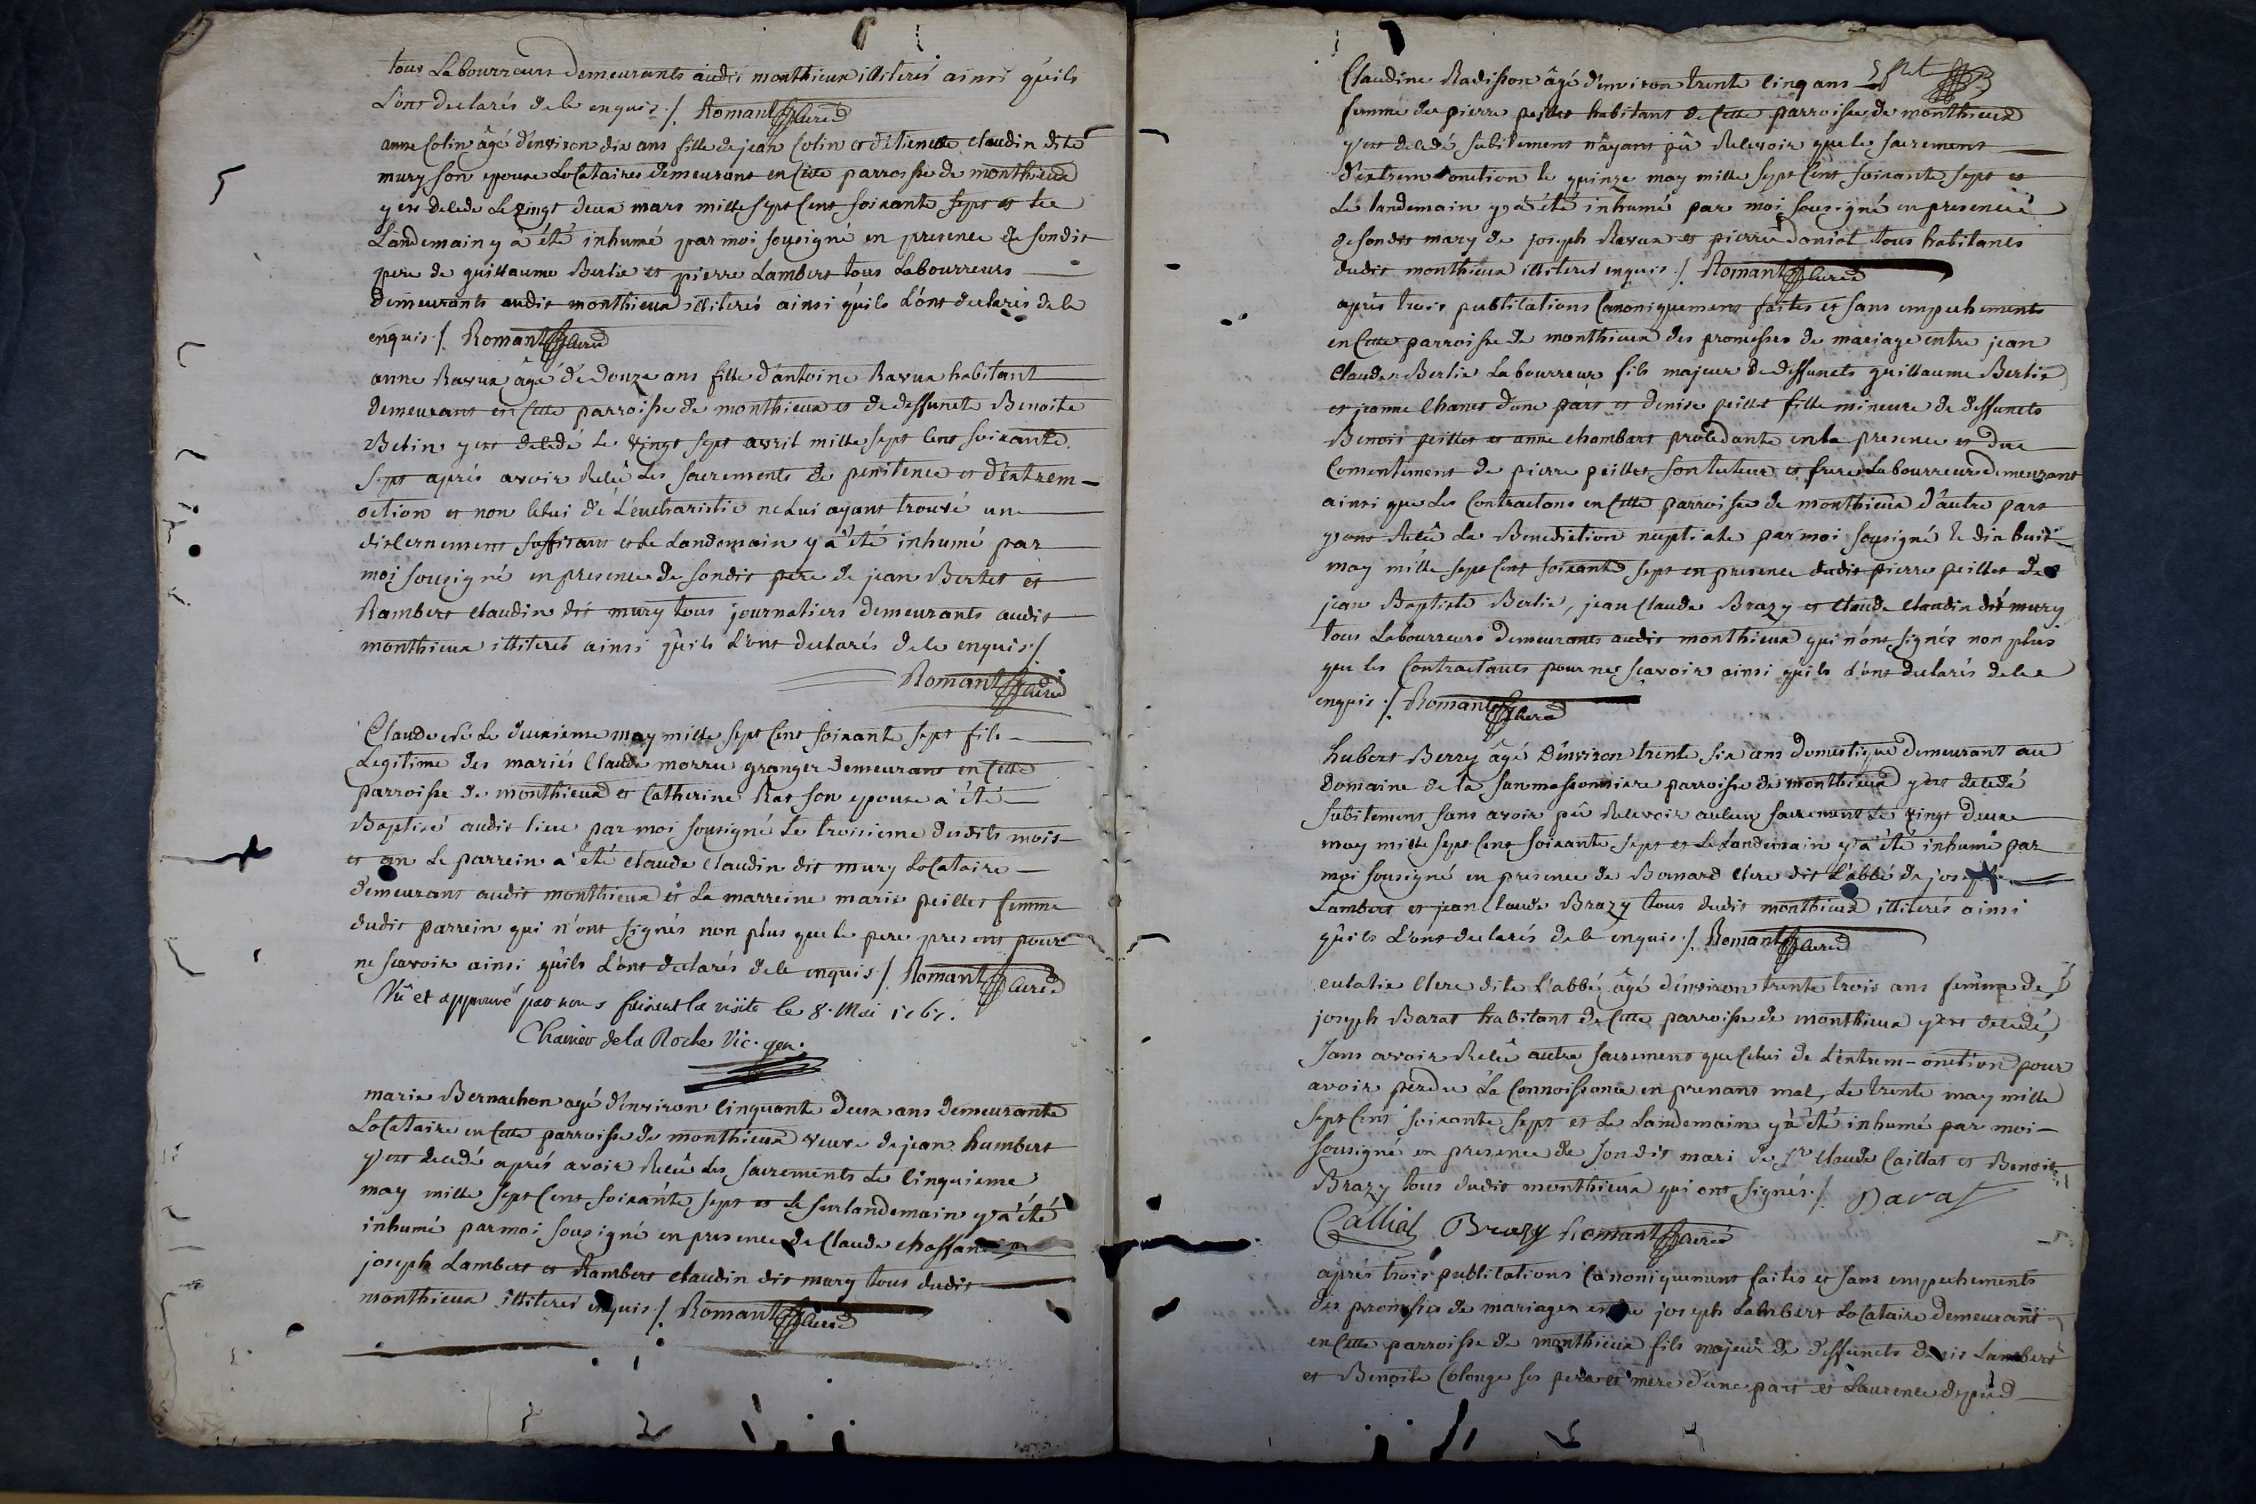 tous Labourreurs demeurants audit monthieux illiterés ainsi qu'ils
L'ont declarés de le enquis ./. Romant Curé
anne Colin âgé d'environ dix ans fille de jean Colin et d'etienette Claudin dite
mury son epouse Locataires demeurant en Cette parroisse de monthieux
y est decedé Le vingt deux mars mille sept Cent soixante sept et le
Landemain y à été inhumé par moi sousigné en presence de sondit
pere de guillaume Berlie et pierre Lambert tous Labourreurs
demeurants audit monthieux illiterés ainsi qu'ils L'ont declarés de le
enquis ./. Romant Curé
anne Ravux âgé de douze ans fille d'antoine Ravux habitant
demeurant en Cette parroisse de monthieux et de deffuncte Benoite
Betin y est decedé Le vingt sept avril mille sept Cent soixante
sept aprés avoir Recû Les sacrements de penitence et d'extrem-
oction et non Celui de L'eucharistie ne Lui ayant trouvé un
discernement suffisant et Le Landemain y à été inhumé par
moi sousigné en presence de sondit pere de jean Bertet et
Rambert Claudin dit mury tous journaliers demeurants audit
monthieux illiterés ainsi qu'ils L'ont declarés de le enquis ./.
Romant Curé
Claude né Le deuxieme may mille sept Cent soixante sept fils
Legitime des mariés Claude morru granger demeurant en Cette
parroisse de monthieux et Catherine Rat son epouse a été
Baptisé audit lieu par moi sousigné Le troisieme desdits mois
et an Le parrein a été Claude Claudin dit mury Locataire
demeurant audit monthieux et La marreine marie peillet femme
dudit parrein qui n'ont signés non plus que le pere present pour
ne scavoir ainsi qu'ils L'ont declarés de le enquis ./. Romant Curé
Vû et approuvé par nous faisant la visite le 8. Mai 1767.
Charrier de la Roche Vic. gen.
marie Bernachon agé d'environ Cinquante deux ans demeurante
Locataire en Cette parroisse de monthieux veuve de jean humbert
y est decedé aprés avoir Recû Les sacrements Le Cinquieme
may mille sept Cent soixante sept et Le surlandemain y à été
inhumé par moi sousigné en presence de Claude
joseph Lambert et Rambert Claudin dit mury tous dudit
monthieux illiterés enquis ./. Romant Curé
Claudine Radisson âgé d'environ trente Cinq ans
femme de pierre peillet habitant de Cette parroisse de monthieux
y est decedé subitement n'ayant pû Recevoir que le sacrement
d'extrem onction le quinze may mille sept Cent soixante sept et
Le landemain y à été inhumé par moi sousigné en presence
de sondit mary de joseph Ravux et pierre Doniol tous habitants
dudit monthieux illiterés enquis ./. Romant Curé
aprés trois publications Canoniquement faites et sans empechements
en Cette parroisse de monthieux des promesses de mariage entre jean
Claude Berlie Labourreur fils majeur de deffuncts guillaume Berlie
et jeanne Chanet d'une part et denise peillet fille mineure de deffuncts
Benoit peillet et anne Chambart procedante en la presence et du
Consentiment de pierre peillet son tuteur et frere Labourreur demeurant
ainsi que Les Contractans en Cette parroisse de monthieux d'autre part
y ont Recû La Benediction nuptiale par moi sousigné le dix huit
may mille sept Cent soixante sept en presence dudit pierre peillet de
jean Baptiste Berlie, jean Claude Brazy et Claude Claudin dit mury
tous Labourreurs demeurants audit monthieux qui n'ont signés non plus
que les Contractants pour ne scavoir ainsi qu'ils L'ont declarés de le
enquis ./. Romant Curé
hubert Berry âgé d'environ trente six ans domestique demeurant au
Domaine de la parroisse de monthieux y est decedé
subitement sans avoir pû Recevoir aucun sacrement Le vingt deux
may mille sept Cent soixante sept et Le Landemain y à été inhumé par
moi sousigné en presence de Bernard Clere dit L'abbé de joseph
Lambert et jean Claude Brazy tous dudit monthieux illiterés ainsi
qu'ils L'ont declarés de le enquis ./. Romant Curé
eulalie Clere dite L'abbé âgé d'environ trente trois ans femme de
joseph Barat habitant de Cette parroisse de monthieux y est decedé
sans avoir Recû autre sacrement que Celui de L'extrem-onction pour
avoir perdu La Connoissance en prenant mal, Le trente may mille
sept Cent soixante sept et Le Landemain y à été inhumé par moi
sousigné en presence de sondit mari de Sr Claude Caillat et Benoit
Brazy tous dudit monthieux qui ont signés ./. Barat
Calliat Brazy Romant Curé
aprés trois publications Canoniquement faites et sans empechements
des promesses de mariages entre joseph Lambert Locataire demeurant
en Cette parroisse de monthieux fils majeur de deffuncts denis Lambert
et Benoite Colonge ses pere et mere d'une part et Laurence